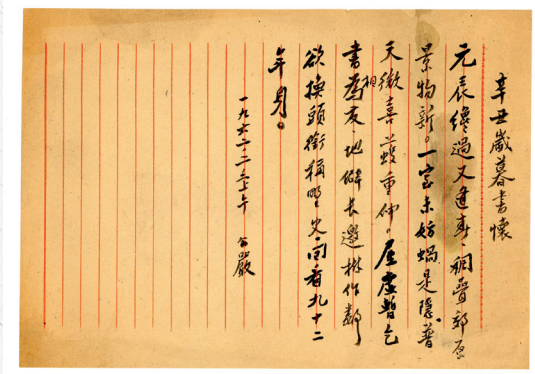 辛丑歲暮書懷
元辰纔過又逢春、稠疊郊原
景物新。一室未妨蝸是隱普
天微喜蠖重伸。屋虛暫乞
相
書為友、地僻長邀樹作鄰
欲換頭銜稱野史、回看九十二
年身。
一九六二、二、三上午 公嚴